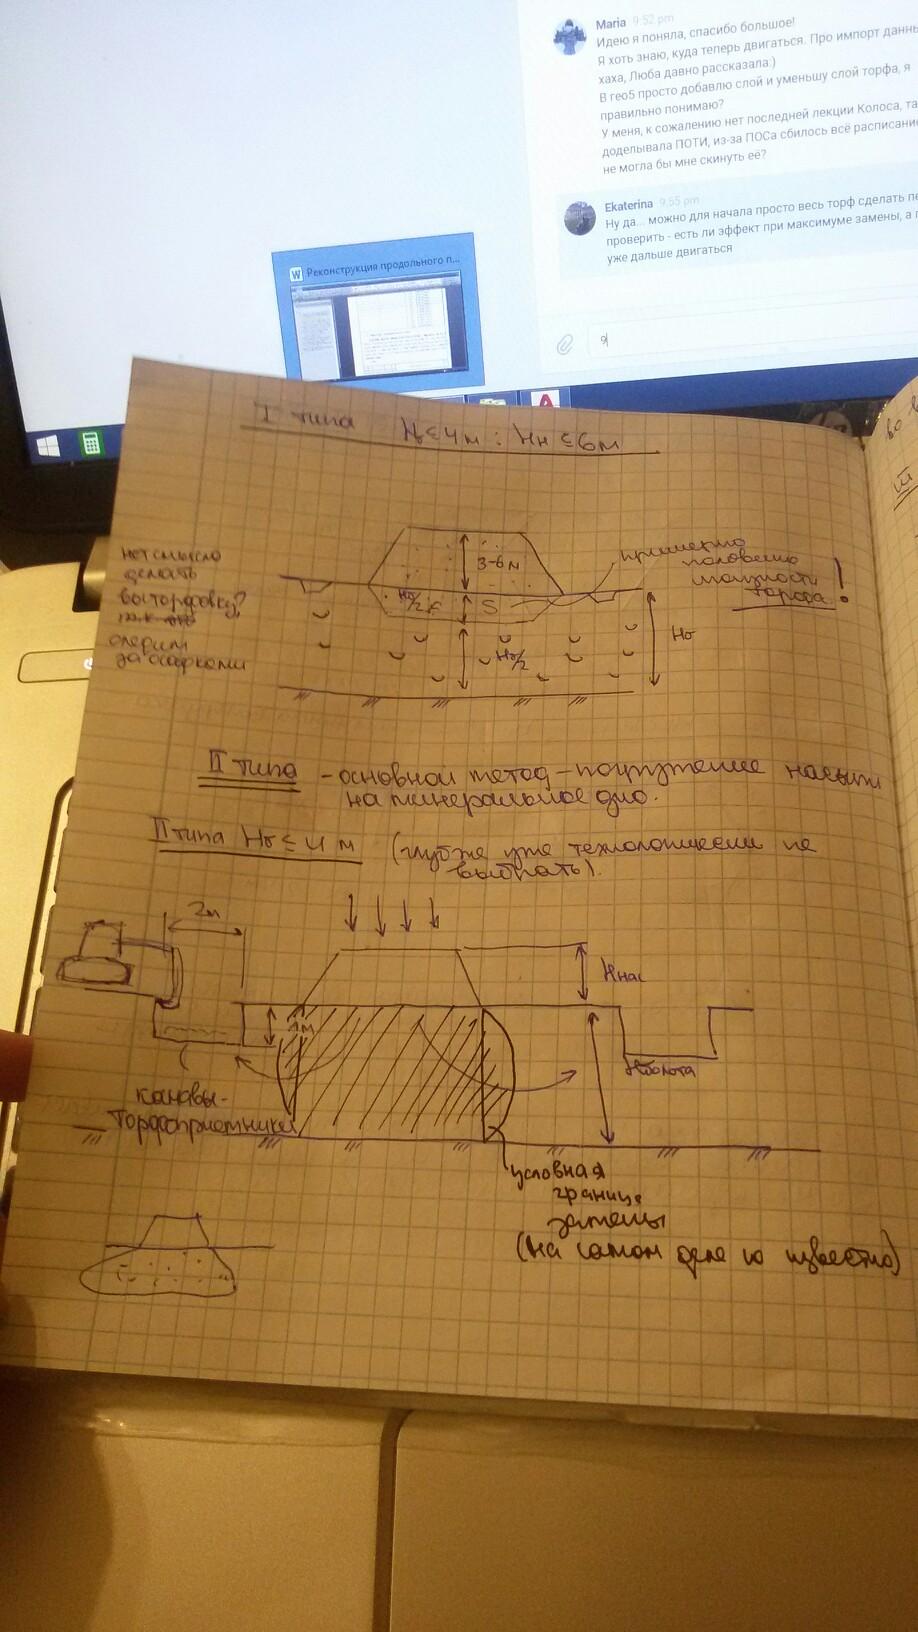 Maria 9:52 pm
Идею я поняла, спасибо большое!
Я хоть знаю, куда теперь двигаться. Про импорт данны
хаха, Люба давно рассказала:)
В гео5 просто добавлю слой и уменьшу слой торфа, я
правильно понимаю?
У меня, к сожалению нет последней лекции Колоса, та
доделывала ПОТИ, из-за ПОСа сбилось всё расписание
не могла бы мне скинуть её?
Ekaterina 9:55 pm
Ну да... можно для начала просто весь торф сделать пе
проверить - есть ли эффект при максимуме замены, а
уже дальше двигаться
Реконструкция продольного п...
я
I типа Hб≤4м : Hн≤6м
нет смысла
делать
выторфовку?
следим
за осадками
3-6м
Hб/2
S
примерно
половину
мощности
торфа!
Hб/2
Hб
II типа - основной метод - погружение насыпи
на минеральное дно.
II типа Hб ≤ 4 м (глубже уже технологически не
выбрать).
2м
Hнас
1м
Hболота
канавы-
торфоприемники
условная
граница
замены
(на самом деле
III